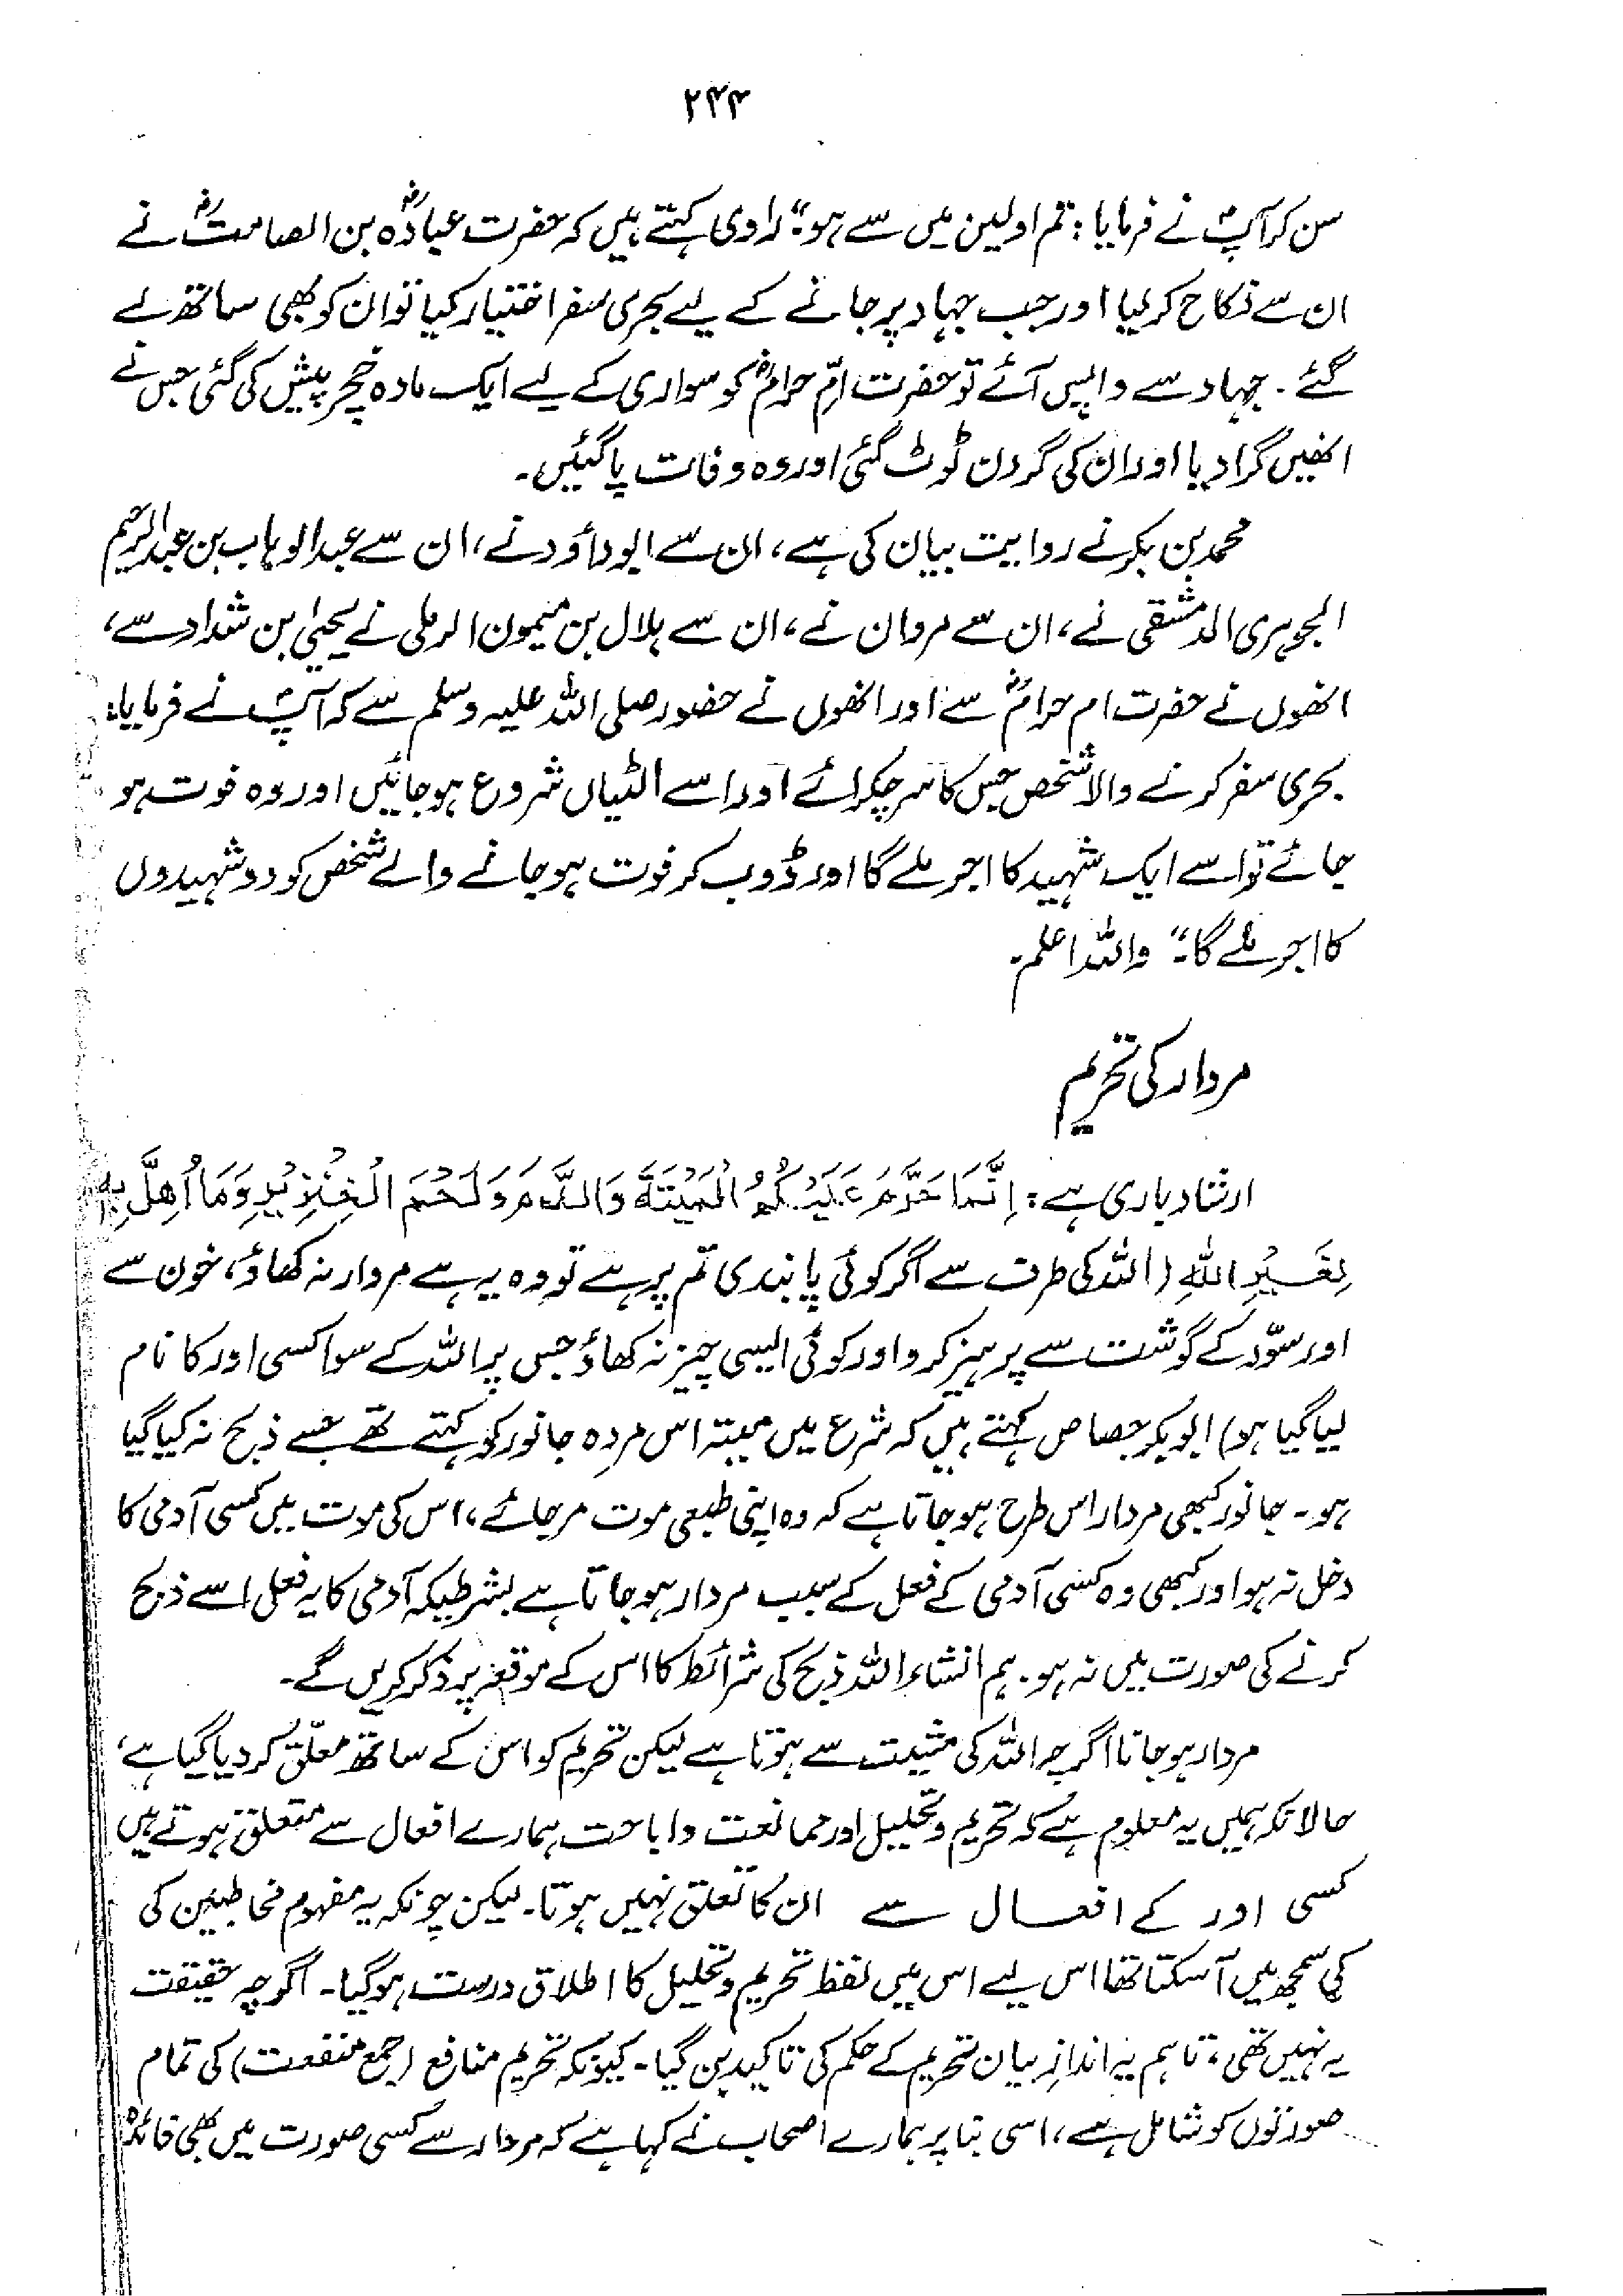 ۲۴۴
سن کر آپؐ نے فرمایا: تم اولین میں سے ہو۔" راوی کہتے ہیں کہ حضرت عبادہؓ بن الصامتؓ نے
ان سے نکاح کر لیا اور جب جہاد پر جانے کے لیے بحری سفر اختیار کیا تو ان کو بھی ساتھ لے
گئے۔ جہاد سے واپس آئے تو حضرت امّ حرامؓ کو سواری کے لیے ایک مادہ خچر پیش کی گئی جس نے
انھیں گرا دیا اور ان کی گردن ٹوٹ گئی اور وہ وفات پا گئیں۔
محمد بن بکر نے روایت بیان کی ہے، ان سے ابوداؤد نے، ان سے عبدالوہاب بن عبدالرحیم
الجوہری الدمشقی نے، ان سے مروان نے، ان سے ہلال بن میمون الرملی نے یحییٰ بن شداد سے،
انھوں نے حضرت ام حرامؓ سے اور انھوں نے حضور صلی اللہ علیہ وسلم سے کہ آپؐ نے فرمایا:
بحری سفر کرنے والا شخص جس کا سر چکرائے اور اسے الٹیاں شروع ہو جائیں اور وہ فوت ہو
جائے تو اسے ایک شہید کا اجر ملے گا اور ڈوب کر فوت ہو جانے والے شخص کو دو شہیدوں
کا اجر ملے گا۔" واللہ اعلم۔
مردار کی تحریم
ارشاد باری ہے: اِنَّمَا حَرَّمَ عَلَيْكُمُ الْمَيْتَةَ وَالدَّمَ وَلَحْمَ الْخِنْزِيْرِ وَمَا اُهِلَّ بِهٖ
لِغَيْرِ اللهِ (اللہ کی طرف سے اگر کوئی پابندی تم پر ہے تو وہ یہ ہے مردار نہ کھاؤ، خون سے
اور سؤر کے گوشت سے پرہیز کرو اور کوئی ایسی چیز نہ کھاؤ جس پر اللہ کے سوا کسی اور کا نام
لیا گیا ہو) ابوبکر جصاص کہتے ہیں کہ شرع میں میتہ اس مردہ جانور کو کہتے تھے جسے ذبح نہ کیا گیا
ہو۔ جانور کبھی مردار اس طرح ہو جاتا ہے کہ وہ اپنی طبعی موت مر جائے، اس کی موت میں کسی آدمی کا
دخل نہ ہو اور کبھی وہ کسی آدمی کے فعل کے سبب مردار ہو جاتا ہے بشرطیکہ آدمی کا یہ فعل اسے ذبح
کرنے کی صورت میں نہ ہو۔ ہم انشاءاللہ ذبح کی شرائط کا اس کے موقعہ پر ذکر کریں گے۔
مردار ہو جانا اگرچہ اللہ کی مشیت سے ہوتا ہے لیکن تحریم کو اس کے ساتھ معلّق کر دیا گیا ہے،
حالانکہ ہمیں یہ معلوم ہے کہ تحریم و تحلیل اور ممانعت و اباحت ہمارے افعال سے متعلق ہوتے ہیں
کسی اور کے افعال سے ان کا تعلق نہیں ہوتا۔ لیکن چونکہ یہ مفہوم مخاطبین کی
کی سمجھ میں آ سکتا تھا اس لیے اس میں لفظ تحریم و تحلیل کا اطلاق درست ہو گیا۔ اگرچہ حقیقت
یہ نہیں تھی، تاہم یہ اندازِ بیان تحریم کے حکم کی تاکید بن گیا۔ کیونکہ تحریم منافع (جمع منفعت) کی تمام
صورتوں کو شامل ہے، اسی بنا پر ہمارے اصحاب نے کہا ہے کہ مردار سے کسی صورت میں بھی فائدہ